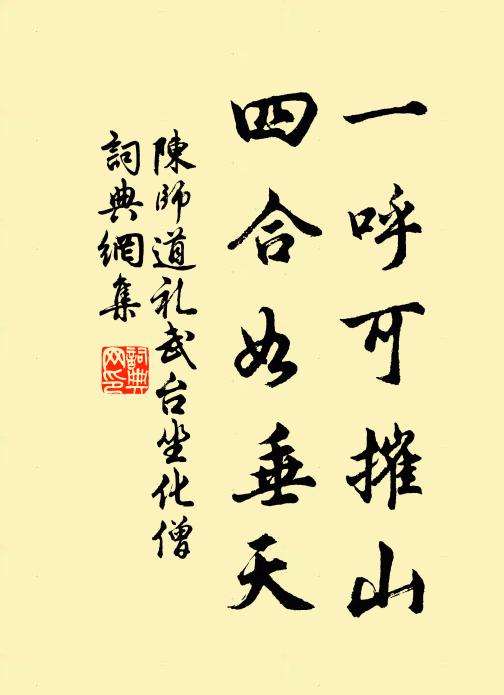 一呼可摧山
四合如垂天
陳師道礼武台坐化僧
詞典網集
詞典網印